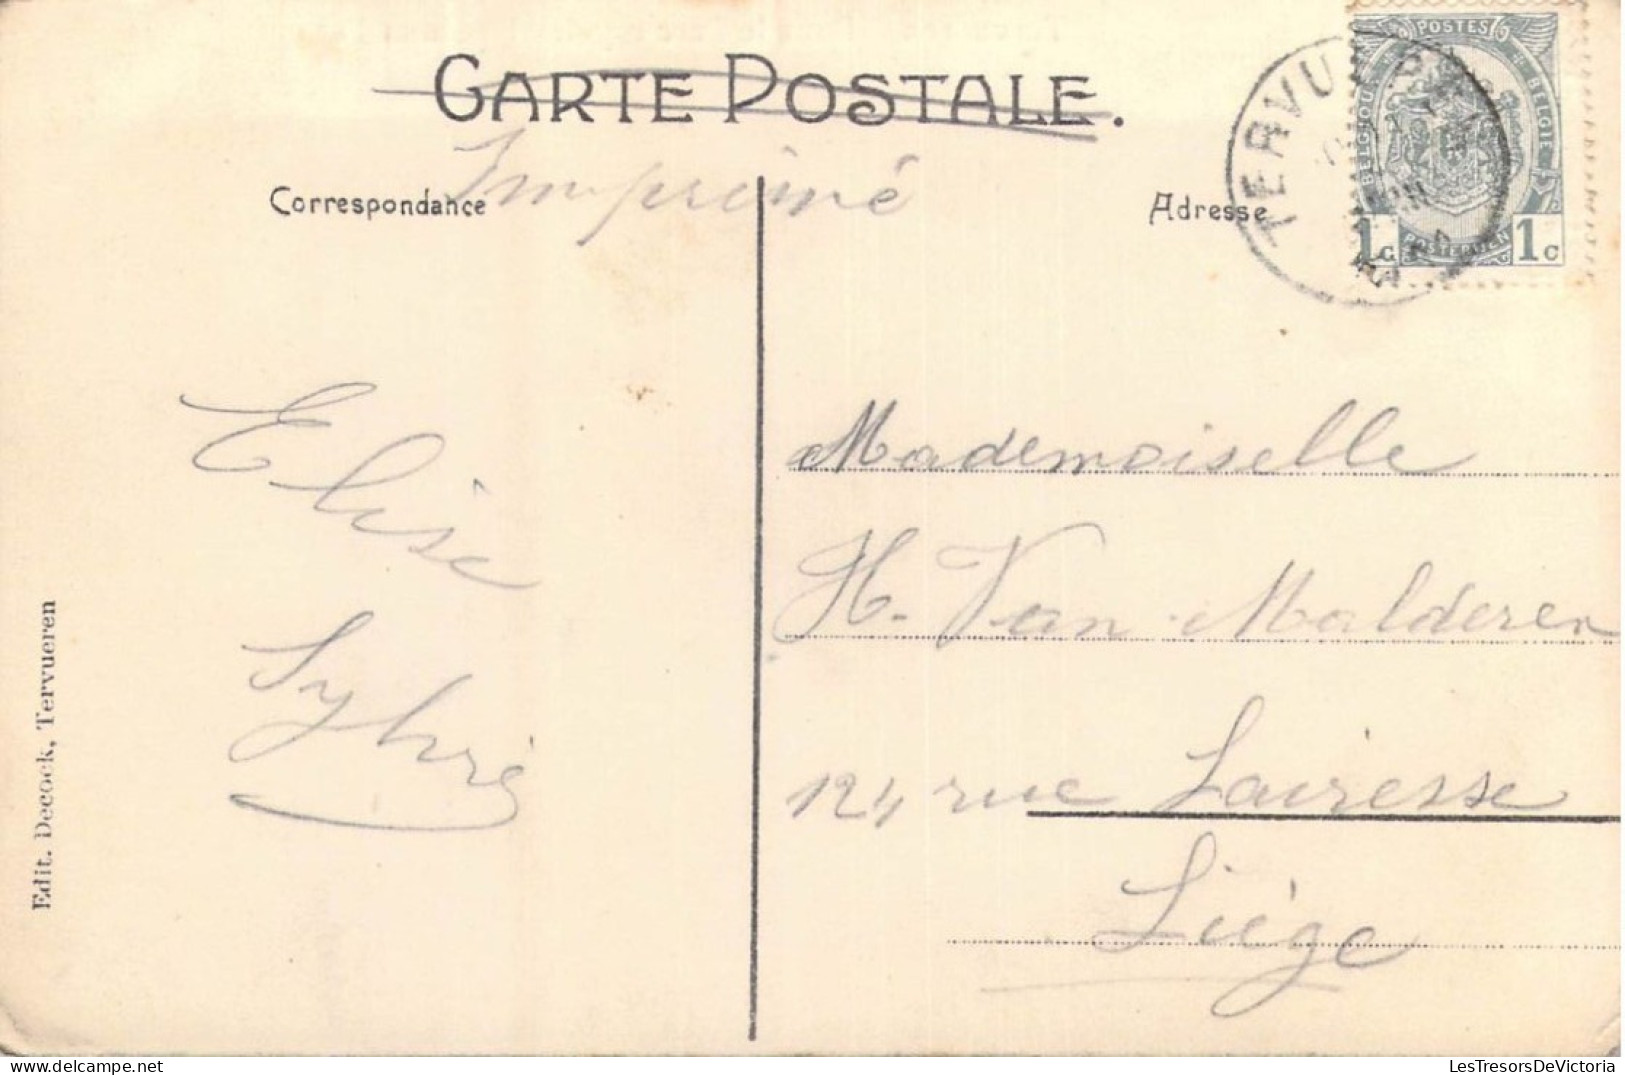 CARTE POSTALE.
Imprimé
Correspondance
Adresse
POSTES
BELGIQUE
BELGIË
POSTERIJEN
1c 1c
TERVUEREN
Elise
Sylvie
Mademoiselle
H. Van Malderen
124 rue Lairesse
Liège
Edit. Decock, Tervueren
LesTresorsDeVictoria